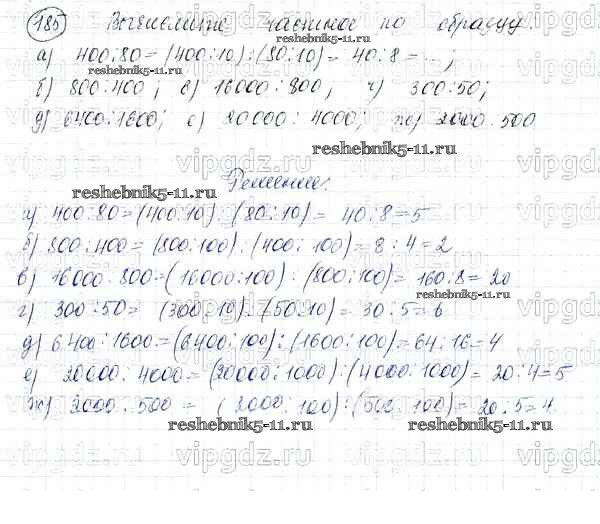 185 Вычислите частное по образцу.
а) 400:80=(400:10):(80:10)=40:8=...,
reshebnik5-11.ru
б) 800:400; в) 16000:800, г) 300:50;
д) 6400:1600; е) 20000:4000; ж) 2000:500
reshebnik5-11.ru
Решение:
reshebnik5-11.ru
а) 400:80=(400:10):(80:10)=40:8=5
б) 800:400=(800:100):(400:100)=8:4=2
в) 16000:800=(16000:100):(800:100)=160:8=20
reshebnik5-11.ru
г) 300:50=(300:10):(50:10)=30:5=6
д) 6400:1600=(6400:100):(1600:100)=64:16=4
е) 20000:4000=(20000:1000):(4000:1000)=20:4=5
ж) 2000:500=(2000:100):(500:100)=20:5=4
reshebnik5-11.ru
vipgdz.ru vipgdz.ru vipgdz.ru